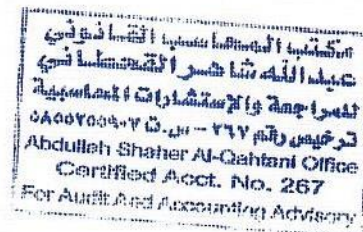 مكتب المحاسب القانوني
عبدالله شاهر القحطاني
للمراجعة والإستشارات المحاسبية
ترخيص رقم ٢٦٧ - س.ت ٥٨٥٥٢٥٥٩٠٢
Abdullah Shaher Al-Qahtani Office
Certified Acct. No. 267
For Audit And Accounting Advisory